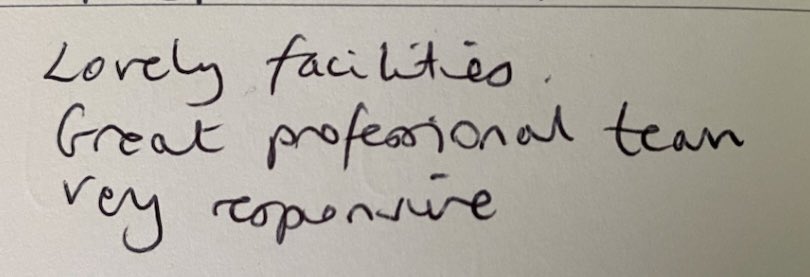 Lovely facilities.
Great professional team
very responsive